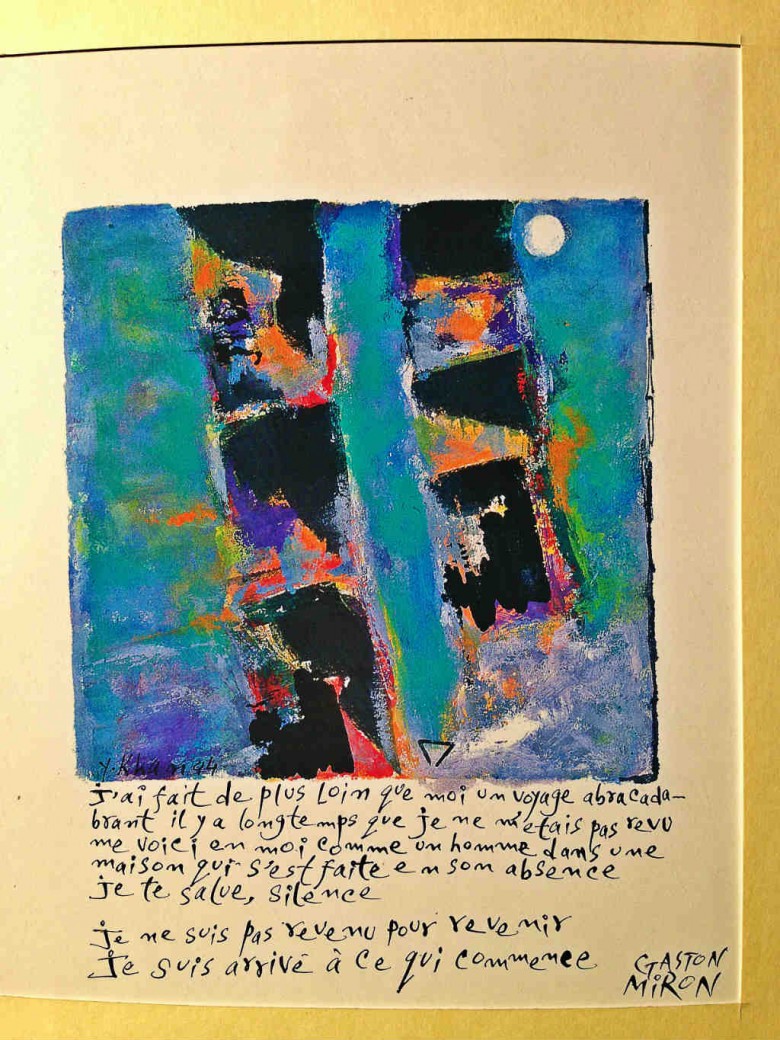 Y. Khairi 94
j'ai fait de plus loin que moi un voyage abracada-
brant il y a longtemps que je ne m'étais pas revu
me voici en moi comme un homme dans une
maison qui s'est faite en son absence
je te salue, silence
je ne suis pas revenu pour revenir
Je suis arrivé à ce qui commence
GASTON
MIRON